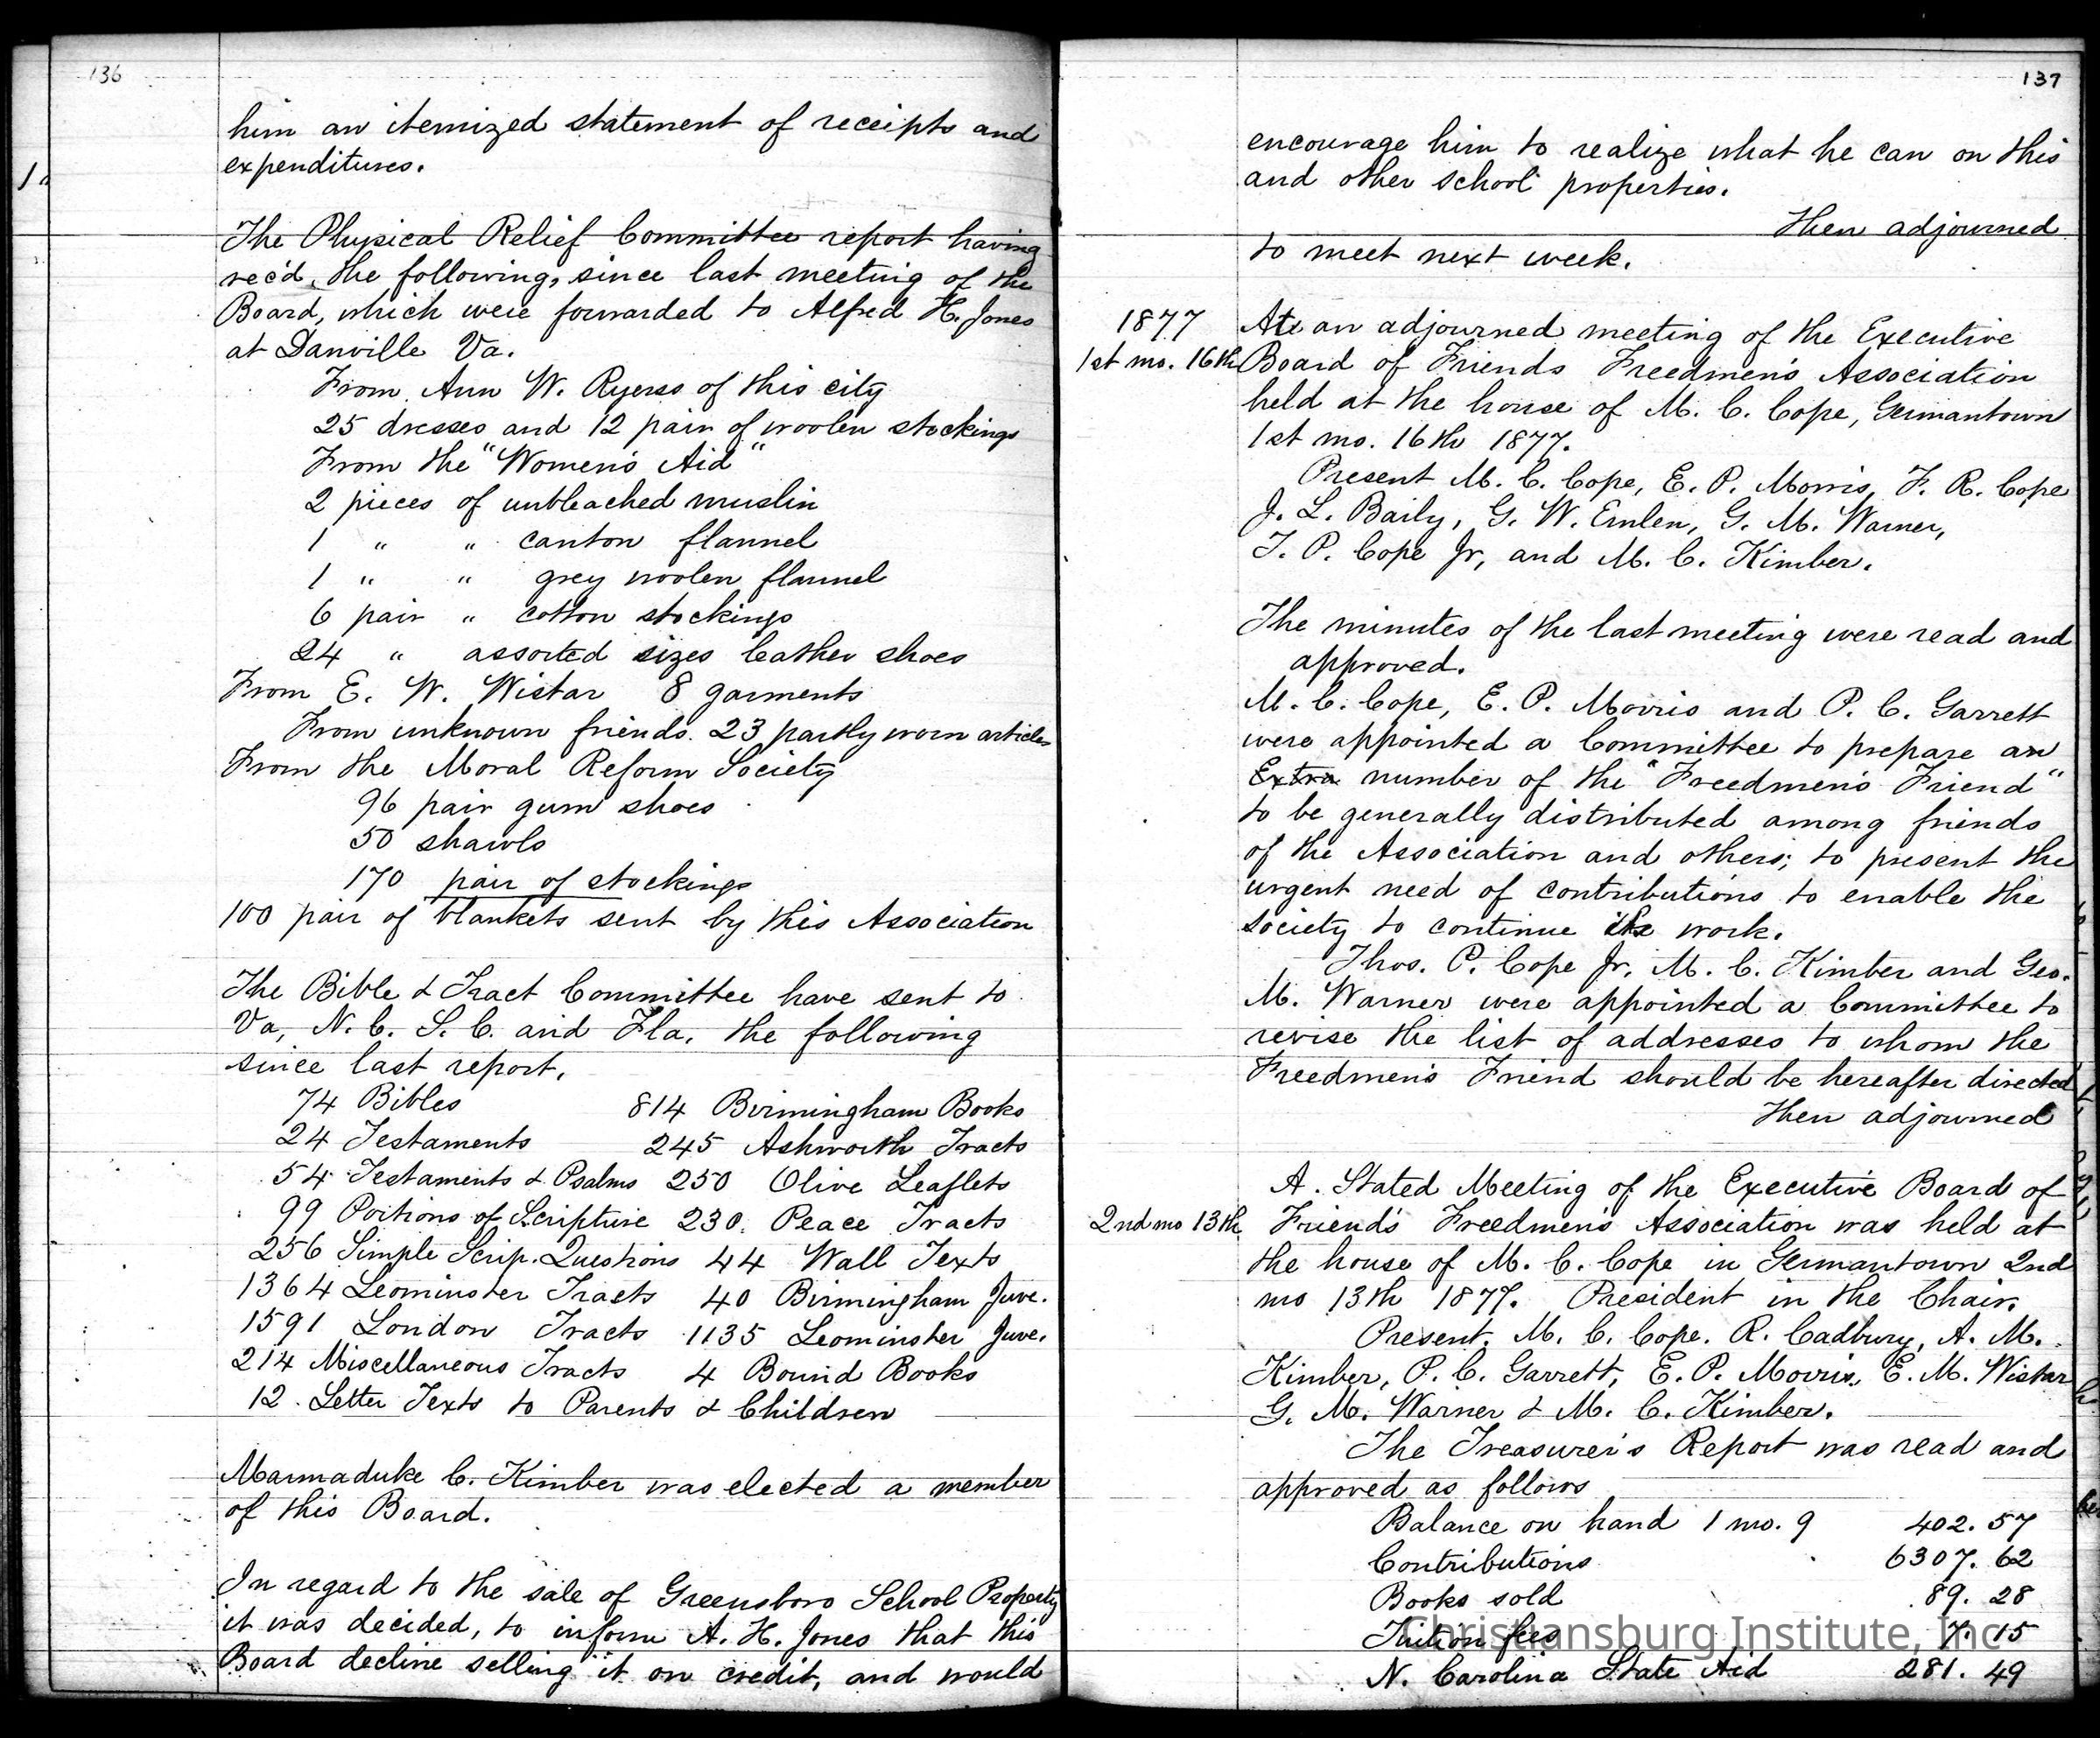 136
him an itemized statement of receipts and
expenditures.
The Physical Relief Committee report having
rec'd, the following, since last meeting of the
Board, which were forwarded to Alfred H. Jones
at Danville Va.
From Ann W. Ryerss of this city
25 dresses and 12 pair of woolen stockings
From the "Women's Aid"
2 pieces of unbleached muslin
1 " " canton flannel
1 " " grey woolen flannel
6 pair " cotton stockings
24 " assorted sizes leather shoes
From E. W. Wistar 8 garments
From unknown friends. 23 partly worn articles
From the Moral Reform Society
96 pair gum shoes
50 shawls
170 pair of stockings
100 pair of blankets sent by this Association
The Bible & Tract Committee have sent to
Va, N. C. S. C. and Fla. the following
since last report.
74 Bibles 814 Birmingham Books
24 Testaments 245 Ashworth Tracts
54 Testaments & Psalms 250 Olive Leaflets
99 Portions of Scripture 230. Peace Tracts
256 Simple Scrip. Questions 44 Wall Texts
1364 Leominster Tracts 40 Birmingham Juve.
1591 London Tracts 1135 Leominster Juve.
214 Miscellaneous Tracts 4 Bound Books
12. Letter Texts to Parents & Children
Marmaduke C. Kimber was elected a member
of this Board.
In regard to the sale of Greensboro School Property
it was decided, to inform A. H. Jones that this
Board decline selling it on credit, and would
137
encourage him to realize what he can on this
and other school properties.
Then adjourned
to meet next week.
1877 At an adjourned meeting of the Executive
1st mo. 16th Board of Friends Freedmen's Association
held at the house of M. C. Cope, Germantown
1st mo. 16th 1877.
Present M. C. Cope, E. P. Morris, F. R. Cope
J. L. Baily, G. W. Emlen, G. M. Warner,
T. P. Cope Jr, and M. C. Kimber.
The minutes of the last meeting were read and
approved.
M. C. Cope, E. P. Morris and P. C. Garrett
were appointed a Committee to prepare an
Extra number of the "Freedmen's Friend"
to be generally distributed among friends
of the Association and others; to present the
urgent need of contributions to enable the
society to continue its work.
Thos. P. Cope Jr. M. C. Kimber and Geo.
M. Warner were appointed a Committee to
revise the list of addresses to whom the
Freedmen's Friend should be hereafter directed
Then adjourned
A. Stated Meeting of the Executive Board of
2nd mo 13th Friend's Freedmen's Association was held at
the house of M. C. Cope in Germantown 2nd
mo 13th 1877. President in the Chair.
Present. M. C. Cope. R. Cadbury, A. M.
Kimber, P. C. Garrett, E. P. Morris, E. M. Wistar
G. M. Warner & M. C. Kimber.
The Treasurer's Report was read and
approved as follows
Balance on hand 1 mo. 9 402.57
Contributions 6307.62
Books sold 89.28
Tuition fees 7.15
N. Carolina State Aid 281.49
Christiansburg Institute, Inc